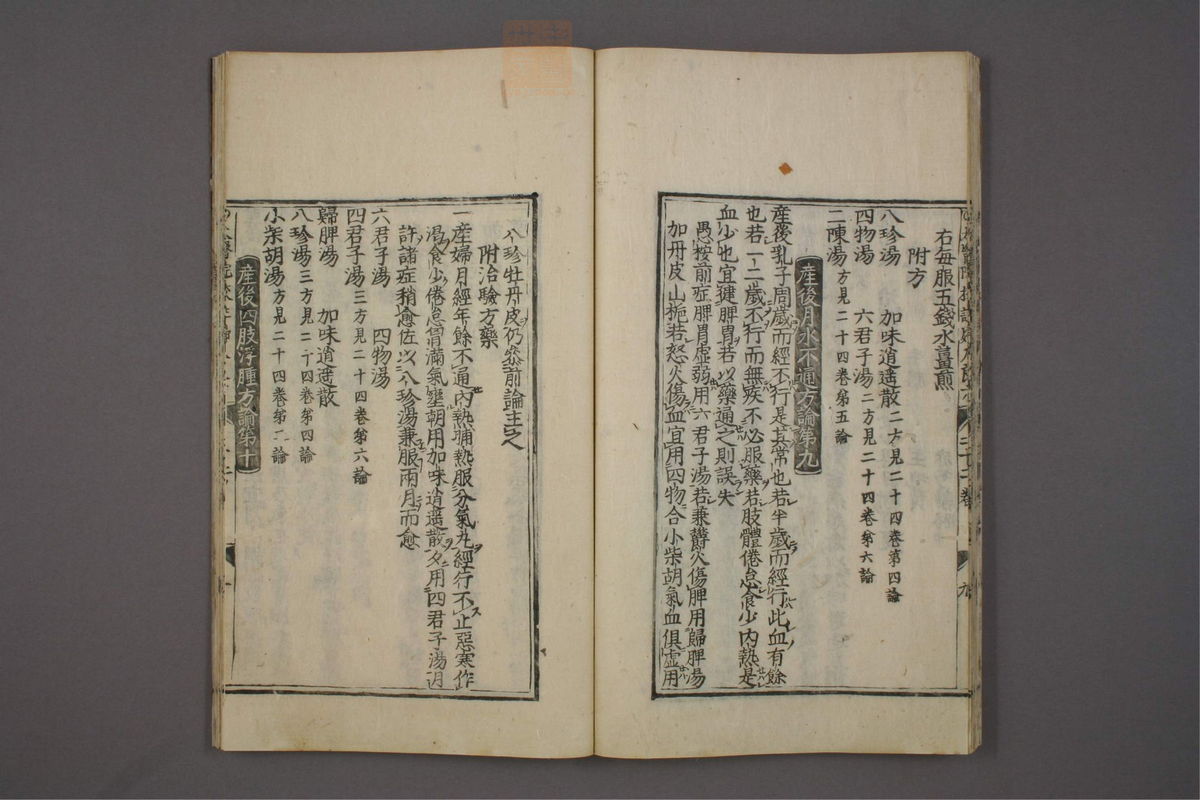 右每服五錢水薑煎
附方
八珍湯　加味逍遥散二方見二十四卷第四論
四物湯　六君子湯二方見二十四卷第六論
二陳湯方見二十四卷第五論
産後月水不通方論第九
産後乳子周歲而經不行是其常也若半歲而經行此血有餘
也若一二歲不行而無疾不必服藥若肢體倦怠食少内熱是
血少也宜健脾胃若以藥通之則誤矣
愚按前症脾胃虚弱用六君子湯若兼欝火傷脾用歸脾湯
加丹皮山梔若怒火傷血宜用四物合小柴胡氣血俱虚用
八珍牡丹皮仍叅前論主之
附治驗方藥
一産婦月經年餘不通内熱晡熱服分氣丸經行不止惡寒作
渴食少倦怠胷滿氣壅朝用加味逍遥散夕用四君子湯月
許諸症稍愈佐以八珍湯兼服兩月而愈
六君子湯　四物湯
四君子湯三方見二十四卷第六論
歸脾湯　加味逍遥散
八珍湯三方見二十四卷第四論
小柴胡湯方見二十四卷第二論
産後四肢浮腫方論第十